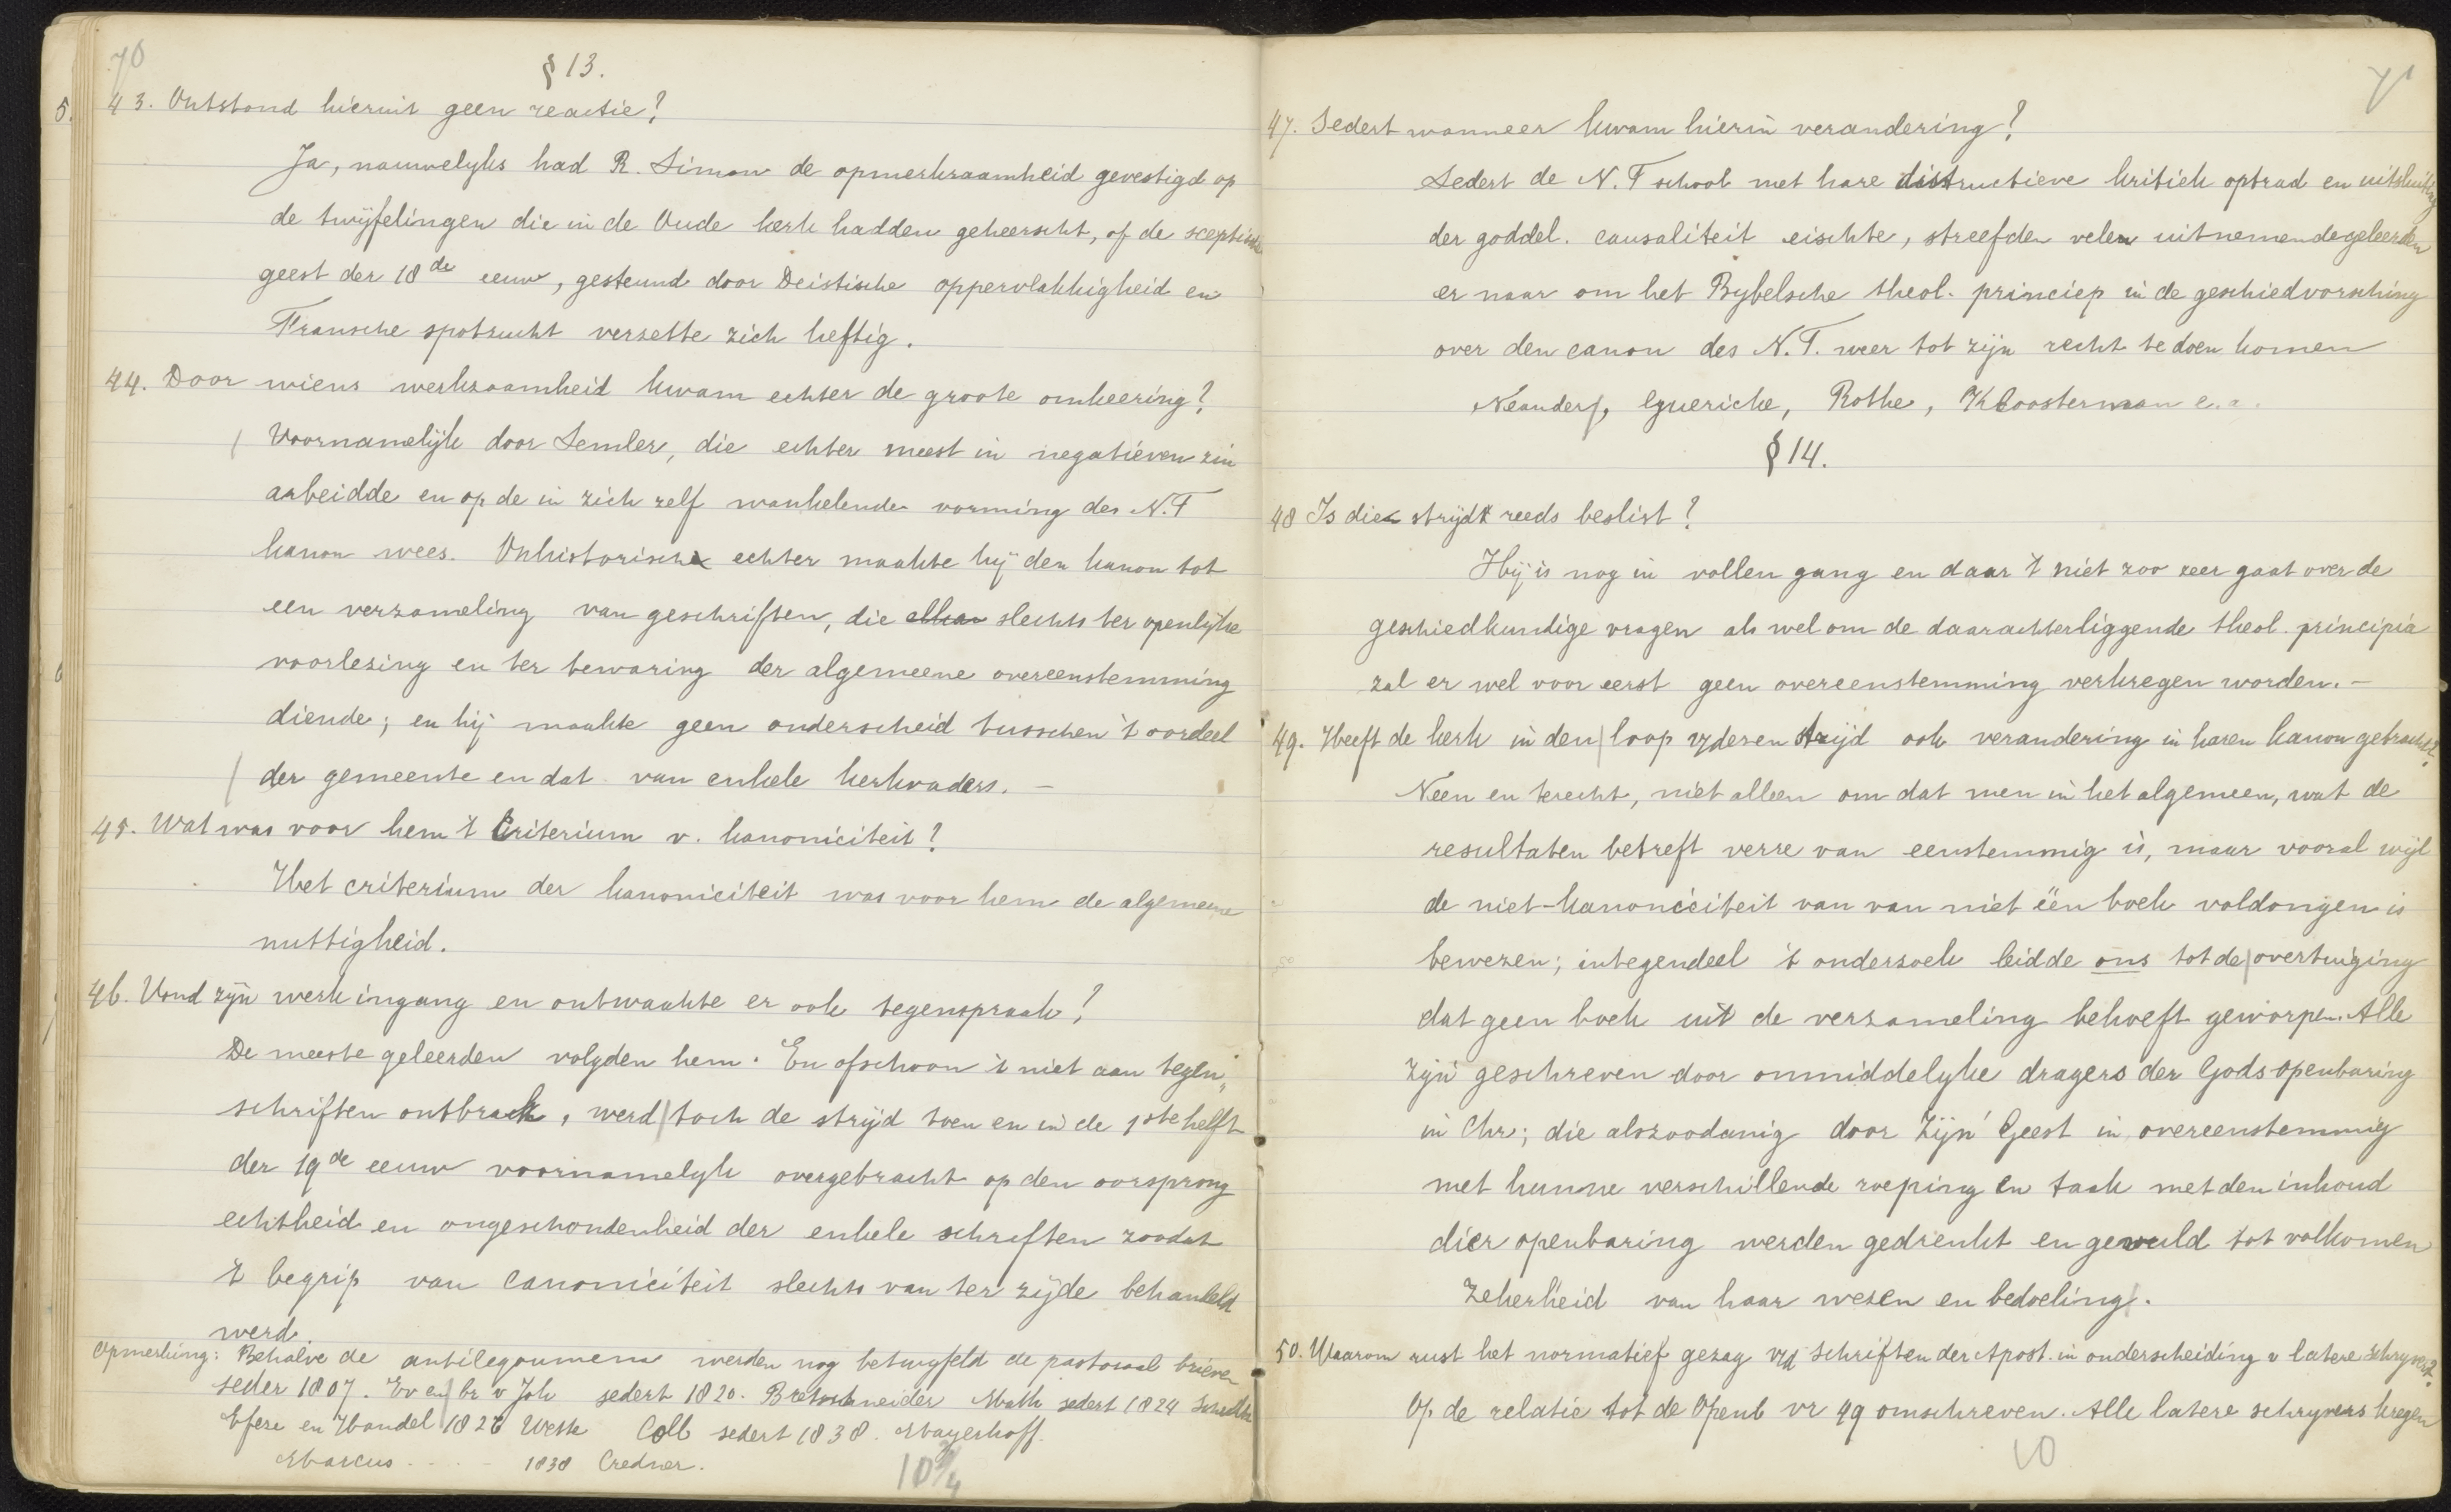 70
§ 13.
5.
43. Ontstond hieruit geen reactie?
Ja, nauwelyks had R. Simon de opmerkzaamheid gevestigd op
de twijfelingen die in de Oude kerk hadden geheerscht, of de sceptische
geest der 18de eeuw, gesteund door Deistische oppervlakkigheid en
Fransche spotzucht verzette zich heftig.
44. Door wiens werkzaamheid kwam echter de groote omkeering?
Voornamelijk door Semler, die echter meest in negatieven zin
arbeidde en op de in zich zelf wankelende vorming des N.T
kanon wees. Onhistorisch echter maakte hij den kanon tot
een verzameling van geschriften, die slechts ter openlijke
voorlezing en ter bewaring der algemeene overeenstemming
diende; en hij maakte geen onderscheid tusschen 't oordeel
der gemeente en dat van enkele kerkvaders. —
45. Wat was voor hem 't Criterium v. kanoniciteit?
Het criterium der kanoniciteit was voor hem de algemeene
nuttigheid.
46. Vond zijn werk ingang en ontwaakte er ook tegenspraak?
De meeste geleerden volgden hem. En ofschoon 't niet aan tegen„
schriften ontbrak, werd toch de strijd toen en in de 1ste helft
der 19de eeuw voornamelyk overgebracht op den oorsprong
echtheid en ongeschondenheid der enkele schriften zoodat
't begrip van Canoniciteit slechts van ter zijde behandeld
werd.
Opmerking: Behalve de antilegoumena werden nog betwyfeld de pastoraal brieven
seder 1807. Ev en br v Joh sedert 1820. Bretschneider Math sedert 1824
Efeze en Handel 1826 Wette Coll sedert 1838. Mayerhoff.
Marcus . . . . 1838 Credner.
10 3/4
71
47. Sedert wanneer kwam hierin verandering?
Sedert de N.T school met hare distructieve kritiek optrad en uitsluiting
der goddel. causaliteit eischte, streefden velen uitnemende geleerden
er naar om het Bybelsche theol. princiep in de geschiedvorsching
over den canon des N.T. weer tot zijn recht te doen komen
Neander, Guericke, Rothe, Kloosterman e.a.
§ 14.
48 Is die strijd reeds beslist?
Hij is nog in vollen gang en daar 't niet zoo zeer gaat over de
geschiedkundige vragen als wel om de daarachterliggende theol. principia
zal er wel voor eerst geen overeenstemming verkregen worden. —
49. Heeft de kerk in den loop v/dezen strijd ook verandering in haren kanon gebracht?
Neen en terecht, niet alleen om dat men in het algemeen, wat de
resultaten betreft verre van eenstemmig is, maar vooral wijl
de niet-kanoniciteit van van niet één boek voldongen is
bewezen; integendeel 't onderzoek leidde ons tot de overtuiging
dat geen boek uit de verzameling behoeft geworpen. Alle
zijn geschreven door onmiddelyke dragers der Gods openbaring
in Chr; die alszoodanig door Zijn Geest in overeenstemmig
met hunne verschillende roeping en taak met den inhoud
dier openbaring werden gedrenkt en gevuld tot volkomen
Zekerheid van haar wezen en bedoeling.
50. Waarom rust het normatief gezag v/d schriften der Apost. in onderscheiding v latere schryvers?
Op de relatie tot de Openb vr 49 omschreven. Alle latere schryvers kregen
10